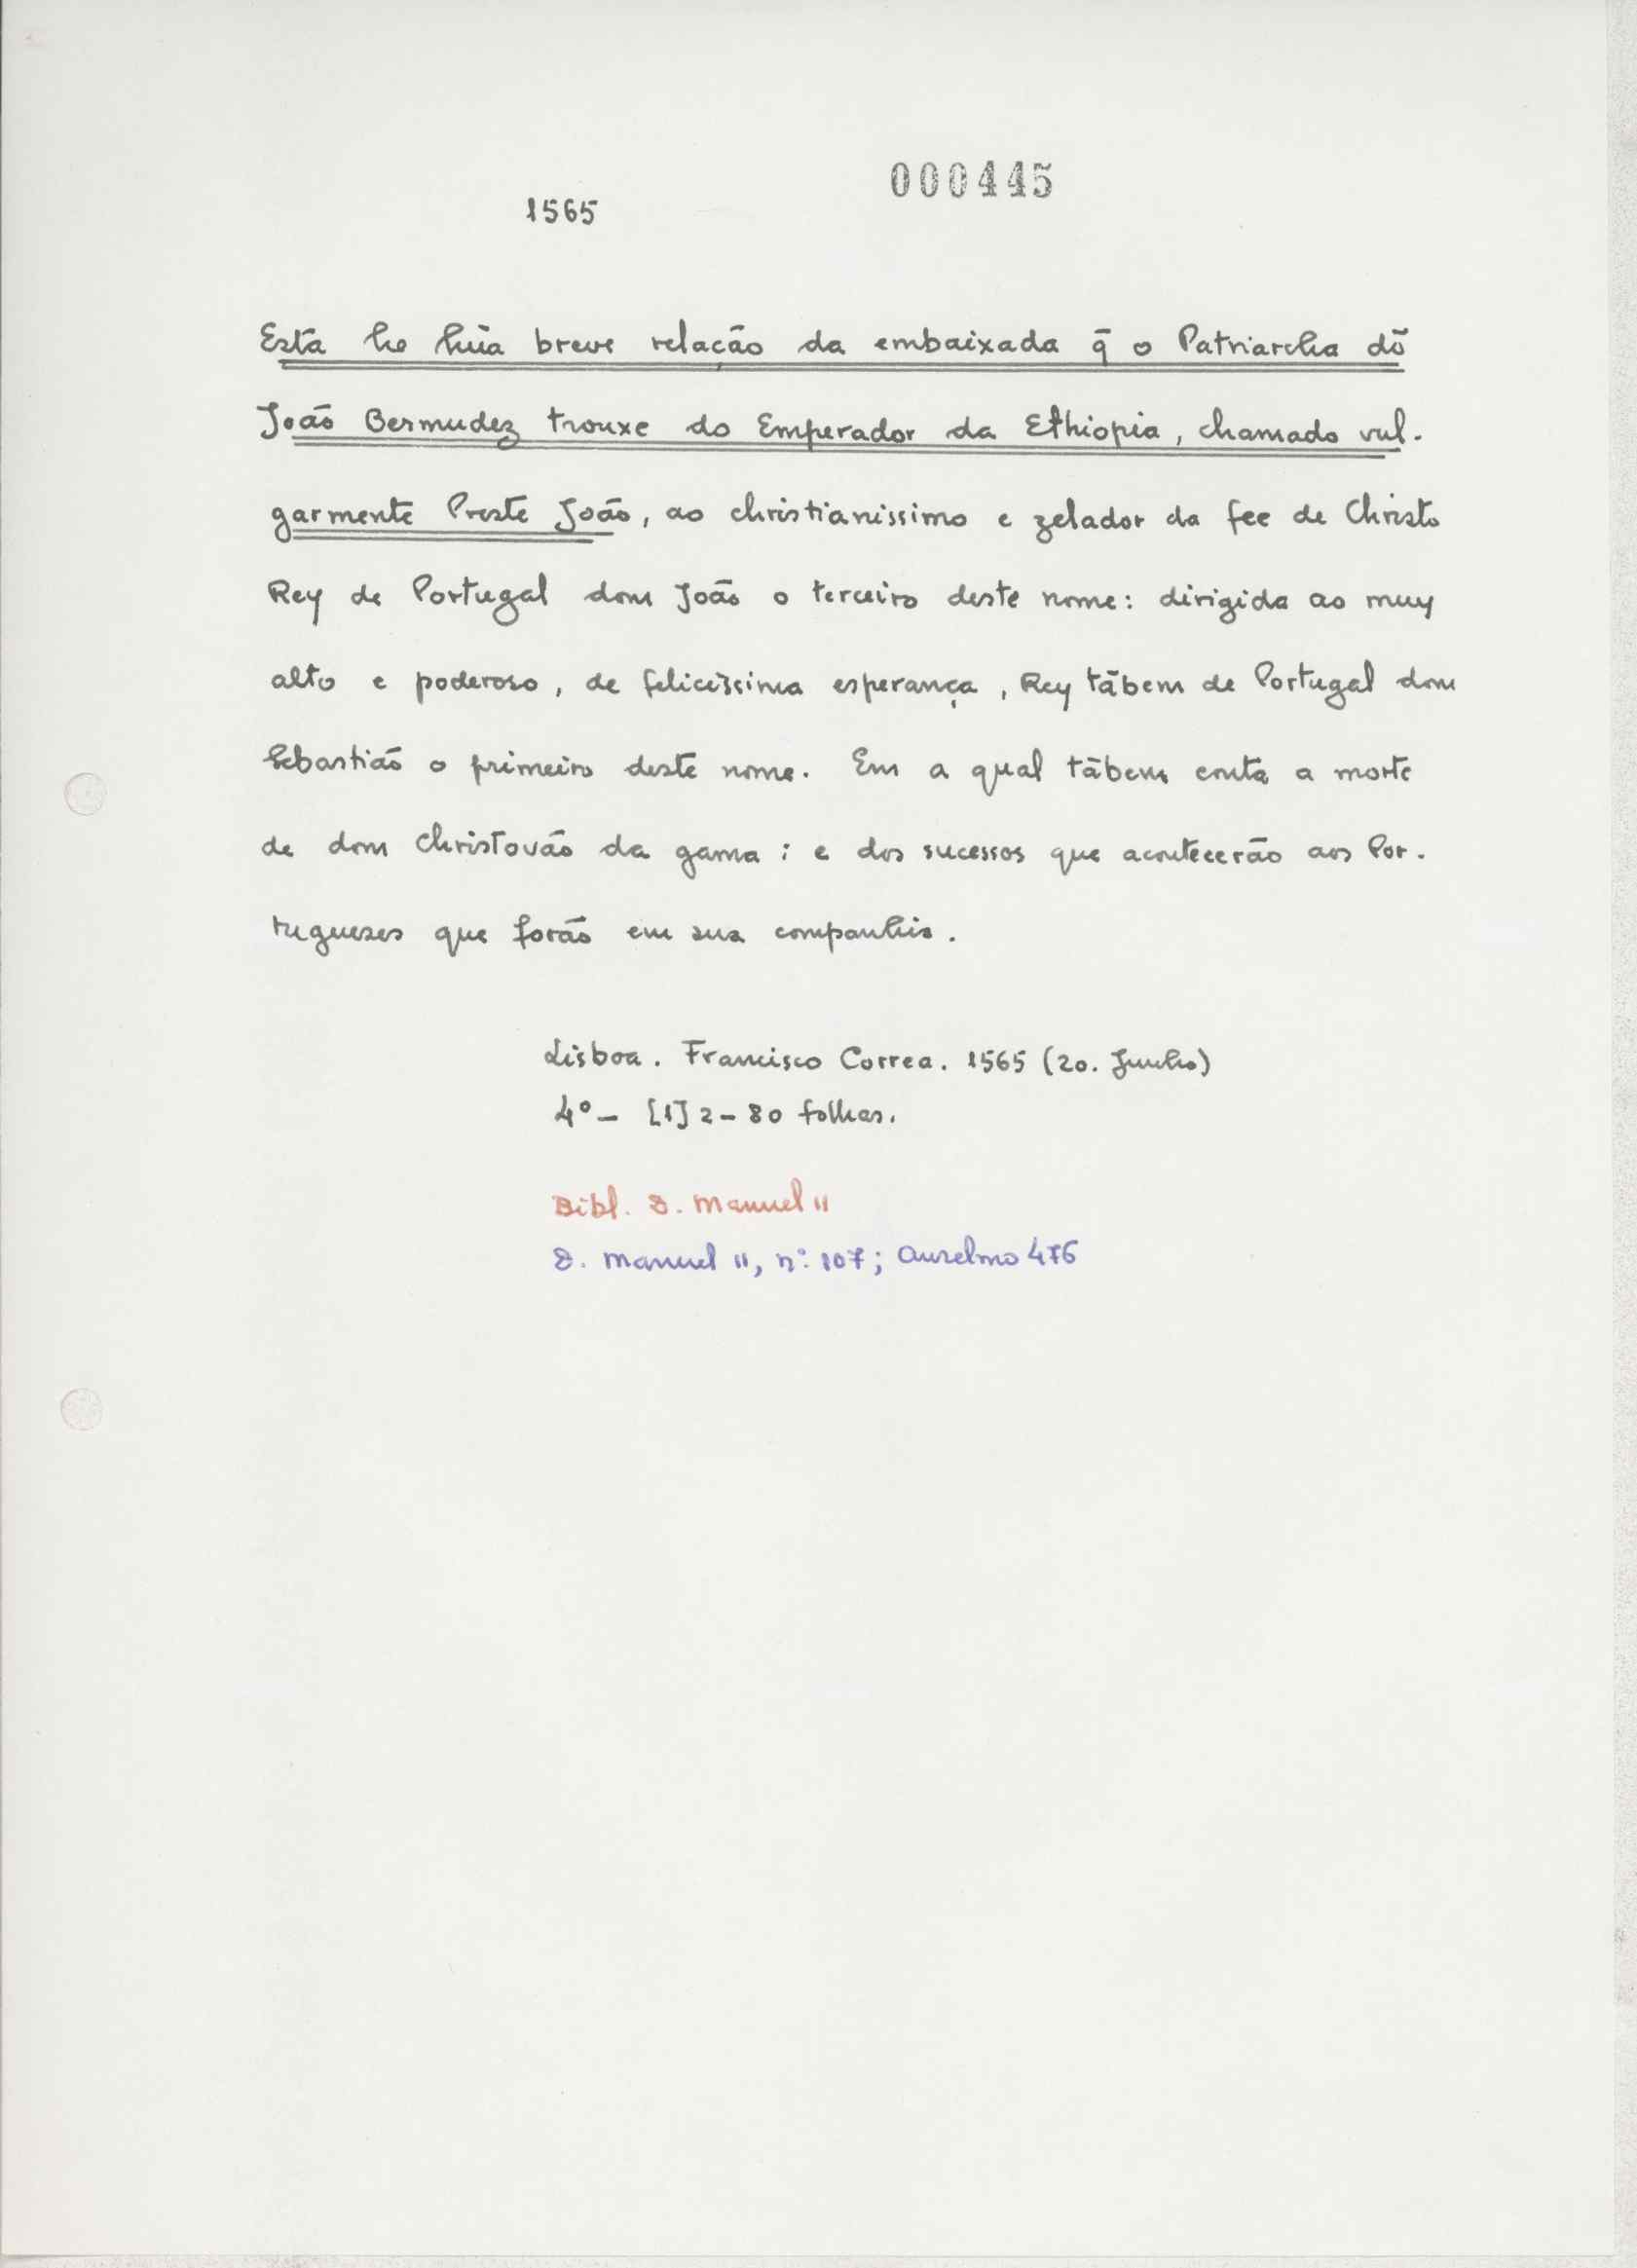 000445
1565
Esta he hũa breve relação da embaixada q̃ o Patriarcha dõ
João Bermudez trouxe do Emperador da Ethiopia, chamado vul-
garmente Preste João, ao christianissimo e zelador da fee de Christo
Rey de Portugal dom João o terceiro deste nome: dirigida ao muy
alto e poderoso, de felicissima esperança, Rey tãbem de Portugal dom
Sebastião o primeiro deste nome. Em a qual tãbem conta a morte
de dom Christovão da gama: e dos sucessos que acontecerão aos Por-
tugueses que forão em sua companhia.
Lisboa. Francisco Correa. 1565 (20. Junho)
4º - [1] 2-80 folhas.
Bibl. D. Manuel II
D. Manuel II, nº 107; Anselmo 476